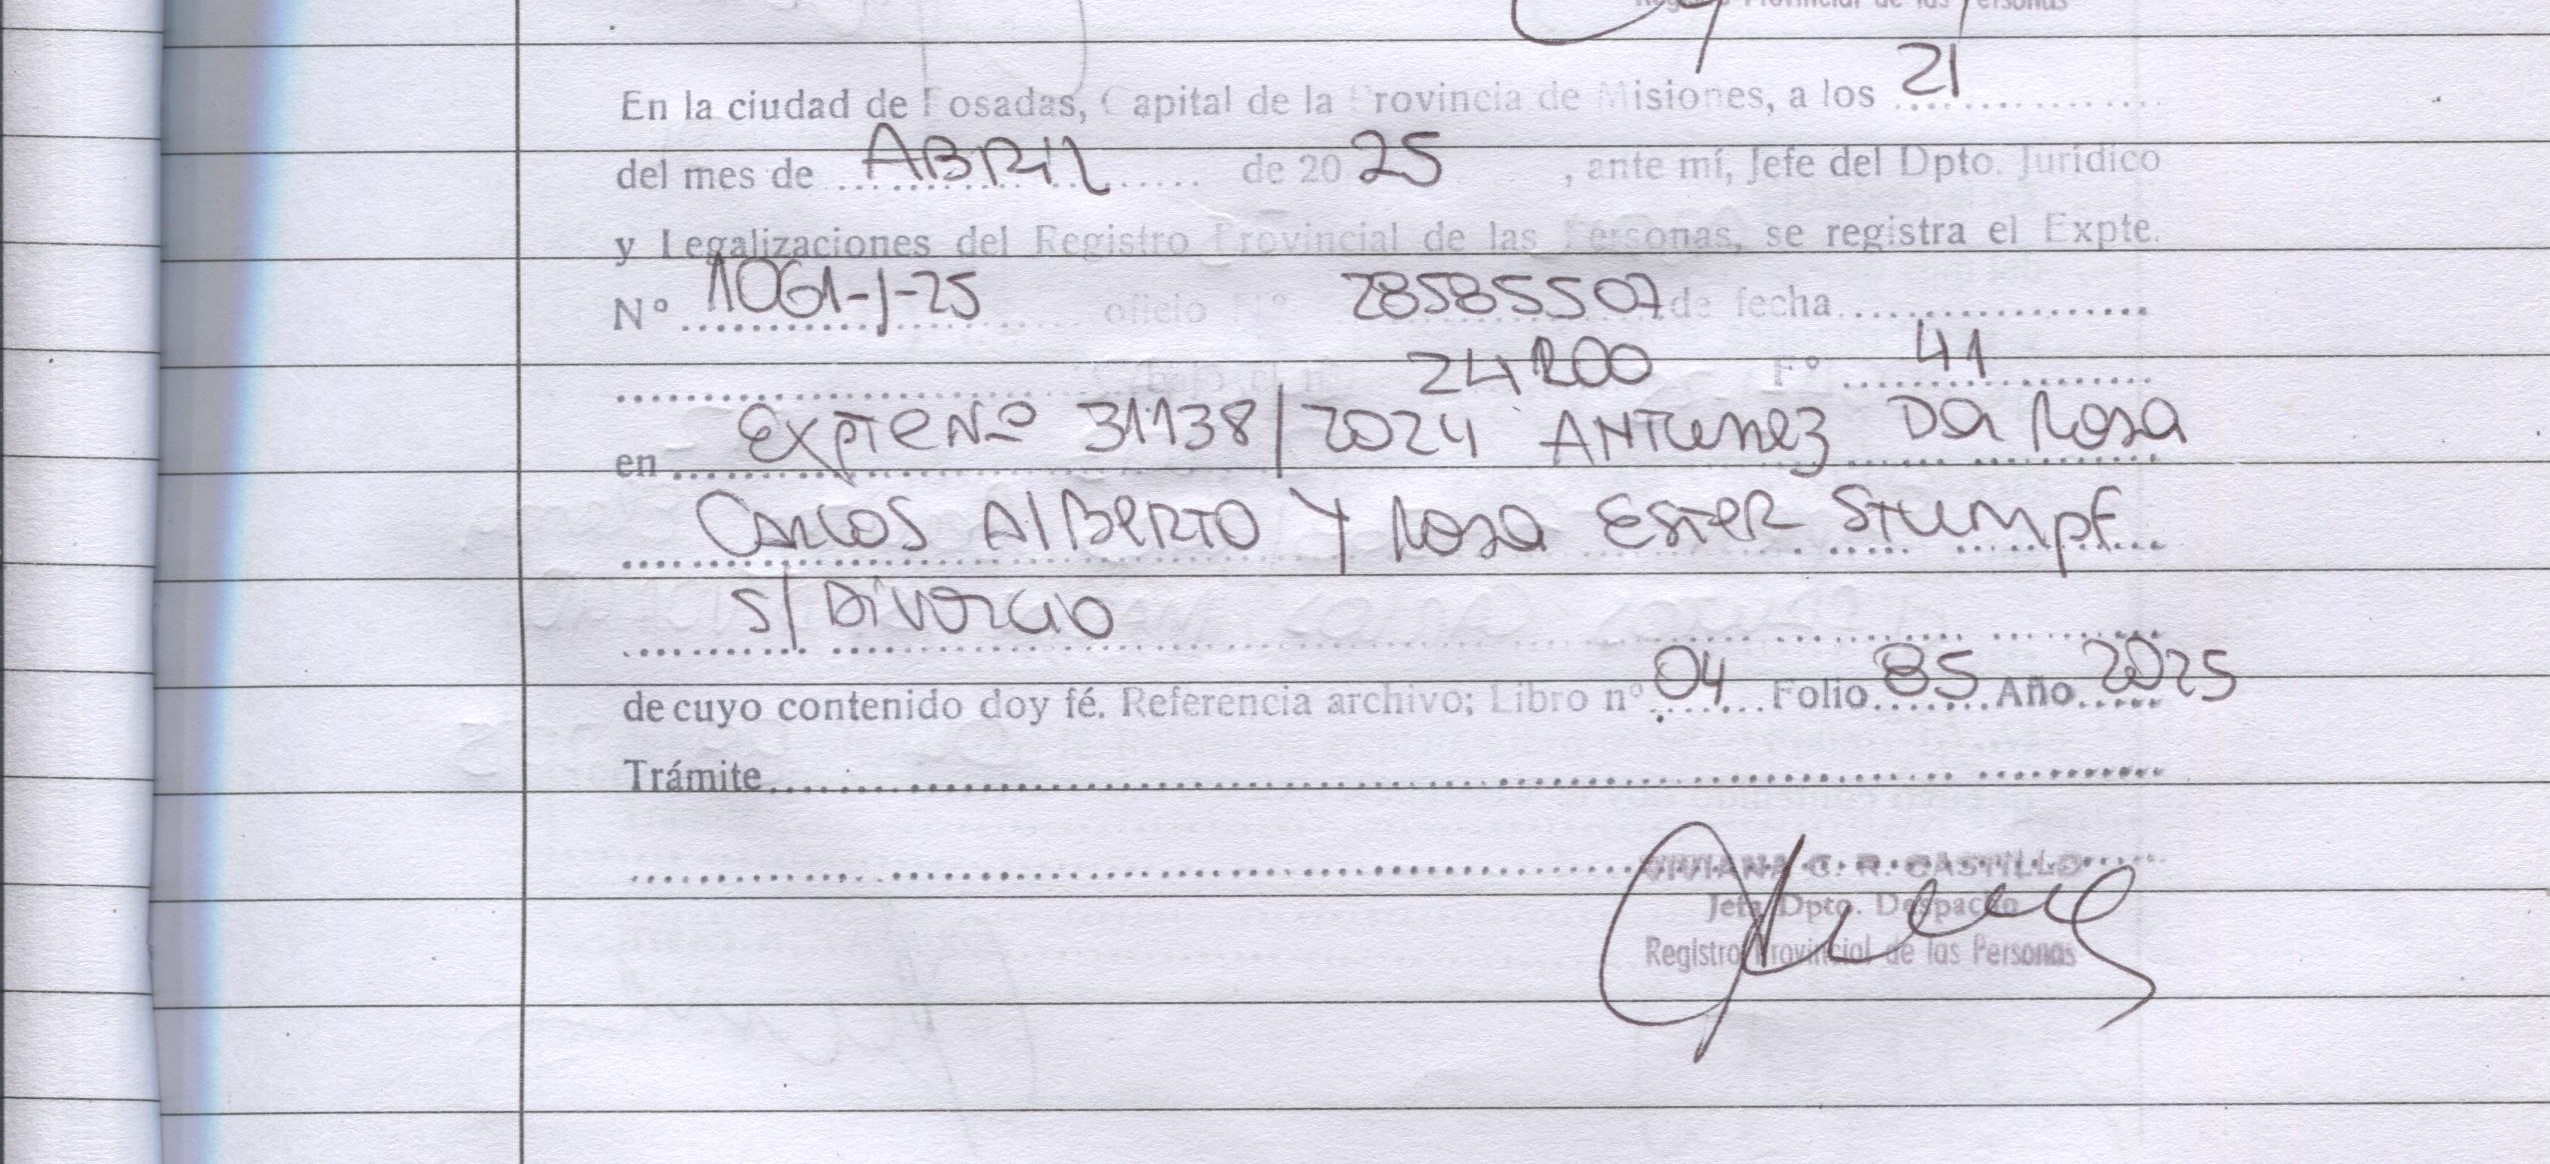 Registro Provincial de las Personas
En la ciudad de Posadas, Capital de la Provincia de Misiones, a los 21
del mes de ABRIL de 2025, ante mí, Jefe del Dpto. Jurídico
y Legalizaciones del Registro Provincial de las Personas, se registra el Expte.
Nº 1061-J-25 oficio Nº 28585507 de fecha
F° 41
en Expte Nº 31138/2024 ANTUNEZ DA ROSA
CARLOS ALBERTO Y ROSA ESTER STUMPF
S/ DIVORCIO
de cuyo contenido doy fé. Referencia archivo; Libro nº 04 Folio 85 Año 2025
Trámite
VIVIANA G. R. CASTILLO
Jefa Dpto. Despacho
Registro Provincial de las Personas